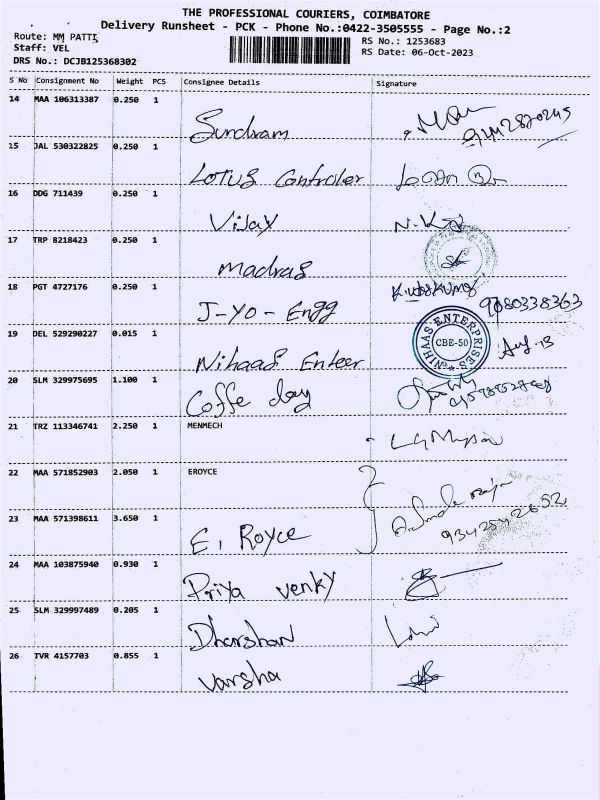 THE PROFESSIONAL COURIERS, COIMBATORE
Delivery Runsheet - PCK - Phone No.:0422-3505555 - Page No.:2
Route: MM PATTI
RS No.: 1253683
Staff: VEL
RS Date: 06-Oct-2023
DRS No.: DCJB125368302
S No Consignment No Weight PCS Consignee Details Signature
14 MAA 106313387 0.250 1
Sundram
15 JAL 530322825 0.250 1
Lotus Controler
16 DDG 711439 0.250 1
Vijay
17 TRP 8218423 0.250 1
Madras
18 PGT 4727176 0.250 1
J-Yo-Engg 9080338363
19 DEL 529290227 0.015 1
Nihaas Enteer
NIHAAS ENTERPRISES
CBE-50
20 SLM 329975695 1.100 1
Coffe day
21 TRZ 113346741 2.250 1 MENMECH
22 MAA 571852903 2.050 1 EROYCE
23 MAA 571398611 3.650 1
E. Royce
24 MAA 103875940 0.930 1
Priya venky
25 SLM 329997489 0.205 1
Dharshan
26 TVR 4157703 0.855 1
Varsha